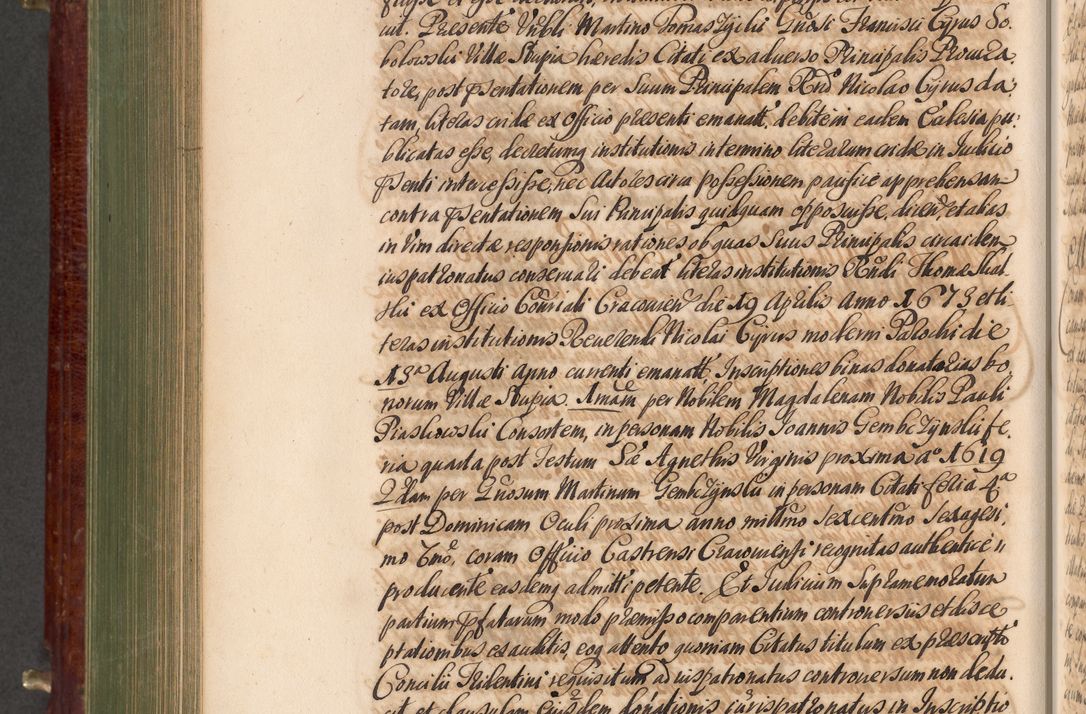 cut. Presente Nobli Martino Tomaszycki Gnosi Francisci Cyrus So:
bolowski Villæ Słupia heredis Citati ex adverso Principalis Procura
tore, post psentationem per Suum Principalem Rnd Nicolao Cyrus da:
tam, literas cridæ ex Officio presenti emanatt. debite in eadem Ecclesia pu:
blicatas esse, decretumq institutionis in termino literarum cridæ in Iudicio
psenti intercessisse, nec Actores circa possessionem pacifice apprehensam
contra psentationem Sui Principalis quidquam opposuisse, dicen. et alias
in Vim directæ responsionis rationes ob quas Suus Principalis circa idem
iuspatronatus conservari debeat literas institutionis Rndi Thomæ Skal
ski ex Officio Consriali Cracovien die 19 Aprilis Anno 1673 et li
teras institutionis Reverendi Nicolai Cyrus moderni Parochi die
13 Augusti Anno currenti emanatt. Inscriptiones binas donatorias bo,
norum Villæ Słupia. Imam per Nobilem Magdalenam Nobilis Pauli
Piaskowski Consortem, in personam Nobilis Joannis Gembczynski fe,
ria quarta post Festum Sæ Agnethis Virginis proxima aº 1619
2dam per Gnosum Martinum Gembczynski in personam Citati feria 4ª
post Dominicam Oculi proxima anno millmo sexcentmo Sexagesi,
mo 7mo, coram Officio Castrensi Cracoviensi recognitas authentice
producente easdemq admitti petente. Et Iudicium Supramemoratum
partium pfatarum modo præmisso comparentium controversiis et disce
ptationibus exauditis, eoq attento quoniam Citatus titulum ex præscripto
Concilii Tridentini requisitum ad iuspatronatus controversum non dedu.
cit et clausulam eiusdem donationis iurispatronatus in Inscriptio